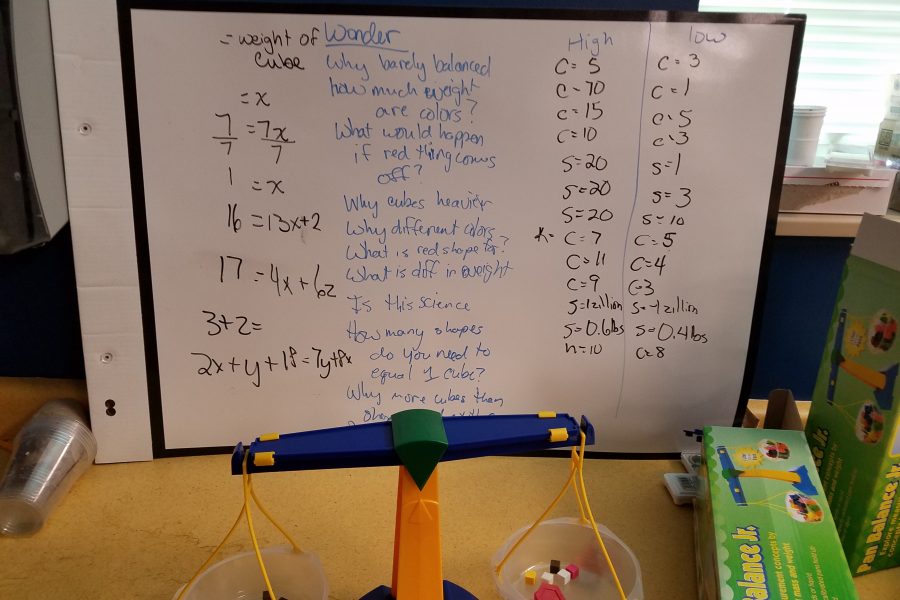 = weight of
cube
= x
7 = 7x
7 7
1 = x
16 = 13x+2
17 = 4x + 6z
3+2=
2x+y+18 = 7y+8x
Wonder
Why barely balanced
how much weight
are colors?
What would happen
if red thing comes
off?
Why cubes heavier
Why different colors
What is red shape for?
What is diff in weight
Is this science
How many shapes
do you need to
equal 1 cube?
Why more cubes than
High
C = 5
C = 70
C = 15
C = 10
S = 20
S = 20
S = 20
C = 7
C = 11
C = 9
S = 1 zillion
S = 0.6 lbs
n = 10
low
C = 3
C = 1
C = 5
C = 3
S = 1
S = 3
S = 10
C = 5
C = 4
C = 3
S = -1 zillion
S = 0.4 lbs
C = 8
Balance Jr.
Pan Balance Jr.